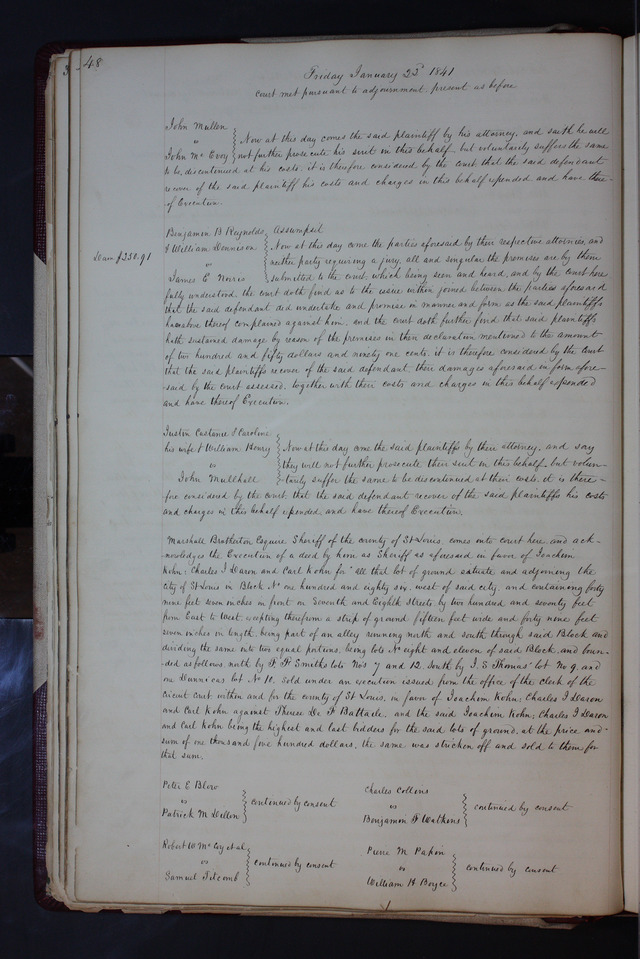 48
Friday January 23d 1841
Court met pursuant to adjournment, present as before
John Mullen
vs
John McEvoy
Now at this day comes the said plaintiff by his attorney, and saith he will
not further prosecute his suit in this behalf, but voluntarily suffers the same
to be discontinued at his costs, it is therefore considered by the court that the said defendant
recover of the said plaintiff his costs and charges in this behalf expended and have there-
of Execution.
Benjamin B Reynolds
& William Dennison
vs
James E Norris
Assumpsit
Dam $250.91
Now at this day come the parties aforesaid by their respective attornies, and
neither party requiring a jury, all and singular the premises are by them
submitted to the court, which being seen and heard, and by the court here
fully understood the court doth find as to the issue within joined between the parties aforesaid
that the said defendant did undertake and promise in manner and form as the said plaintiffs
have above thereof complained against him, and the court doth further find that said plaintiffs
hath sustained damage by reason of the premises in their declaration mentioned to the amount
of two hundred and fifty dollars and ninety one cents, it is therefore considered by the Court
that the said plaintiffs recover of the said defendant, their damages aforesaid in form afore-
said by the court assessed, together with their costs and charges in this behalf expended
and have thereof Execution.
Justin Castanie & Caroline
his wife & William Henry
vs
John Mullhall
Now at this day come the said plaintiffs by their attorney, and say
they will not further prosecute their suit in this behalf, but volun-
tarily suffer the same to be discontinued at their costs, it is there-
fore considered by the court, that the said defendant recover of the said plaintiffs his costs
and charges in this behalf expended, and have thereof Execution.
Marshall Brotherton Esquire Sheriff of the county of St Louis, comes into court here, and ack-
nowledges the Execution of a deed by him as Sheriff as aforesaid in favor of Joachim
Kohn, Charles J Daron and Carl Kohn for "all that lot of ground situate and adjoining the
city of St Louis in Block No one hundred and eighty six, west of said city, and containing forty
nine feet seven inches in front on Seventh and Eighth Streets by two hundred and seventy feet
from East to West, excepting therefrom a strip of ground fifteen feet wide and forty nine feet
seven inches in length, being part of an alley running north and south through said Block and
dividing the same into two equal portions, being lots No eight and eleven of said Block, and boun-
ded as follows north by Smiths lots No's 7 and 12, South by J. S Thomas' lot No 9, and
one Dunnicas lot No 10, sold under an execution issued from the office of the clerk of the
circuit court within and for the county of St Louis, in favor of Joachim Kohn, Charles J Daron
and Carl Kohn against Therese De F Battaile, and the said Joachim Kohn, Charles J Daron
and Carl Kohn being the highest and last bidders for the said lots of ground, at the price and
sum of one thousand five hundred dollars, the same was stricken off and sold to them for
that sum.
Peter E Blow
vs
Patrick M Dillon
continued by consent
Charles Collins
vs
Benjamin F Watkins
continued by consent
Robert W McCoy et al
vs
Samuel Titcomb
continued by consent
Pierre M Papin
vs
William H Boyce
continued by consent